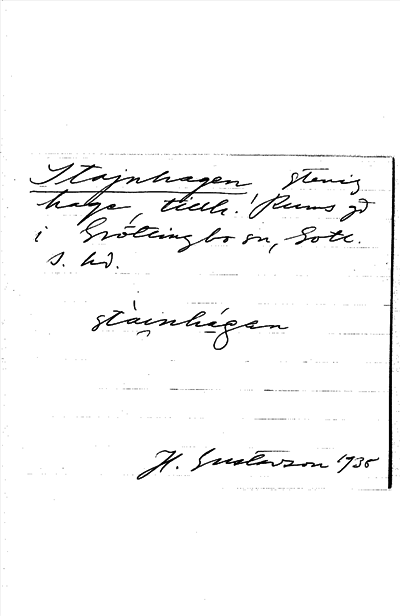 Stajnhagen, stenig
hage, tillh. Rums gd
i Gröttingbo sn, Gotl.
s. hd.
stàinhágan
H. Gustavson 1935